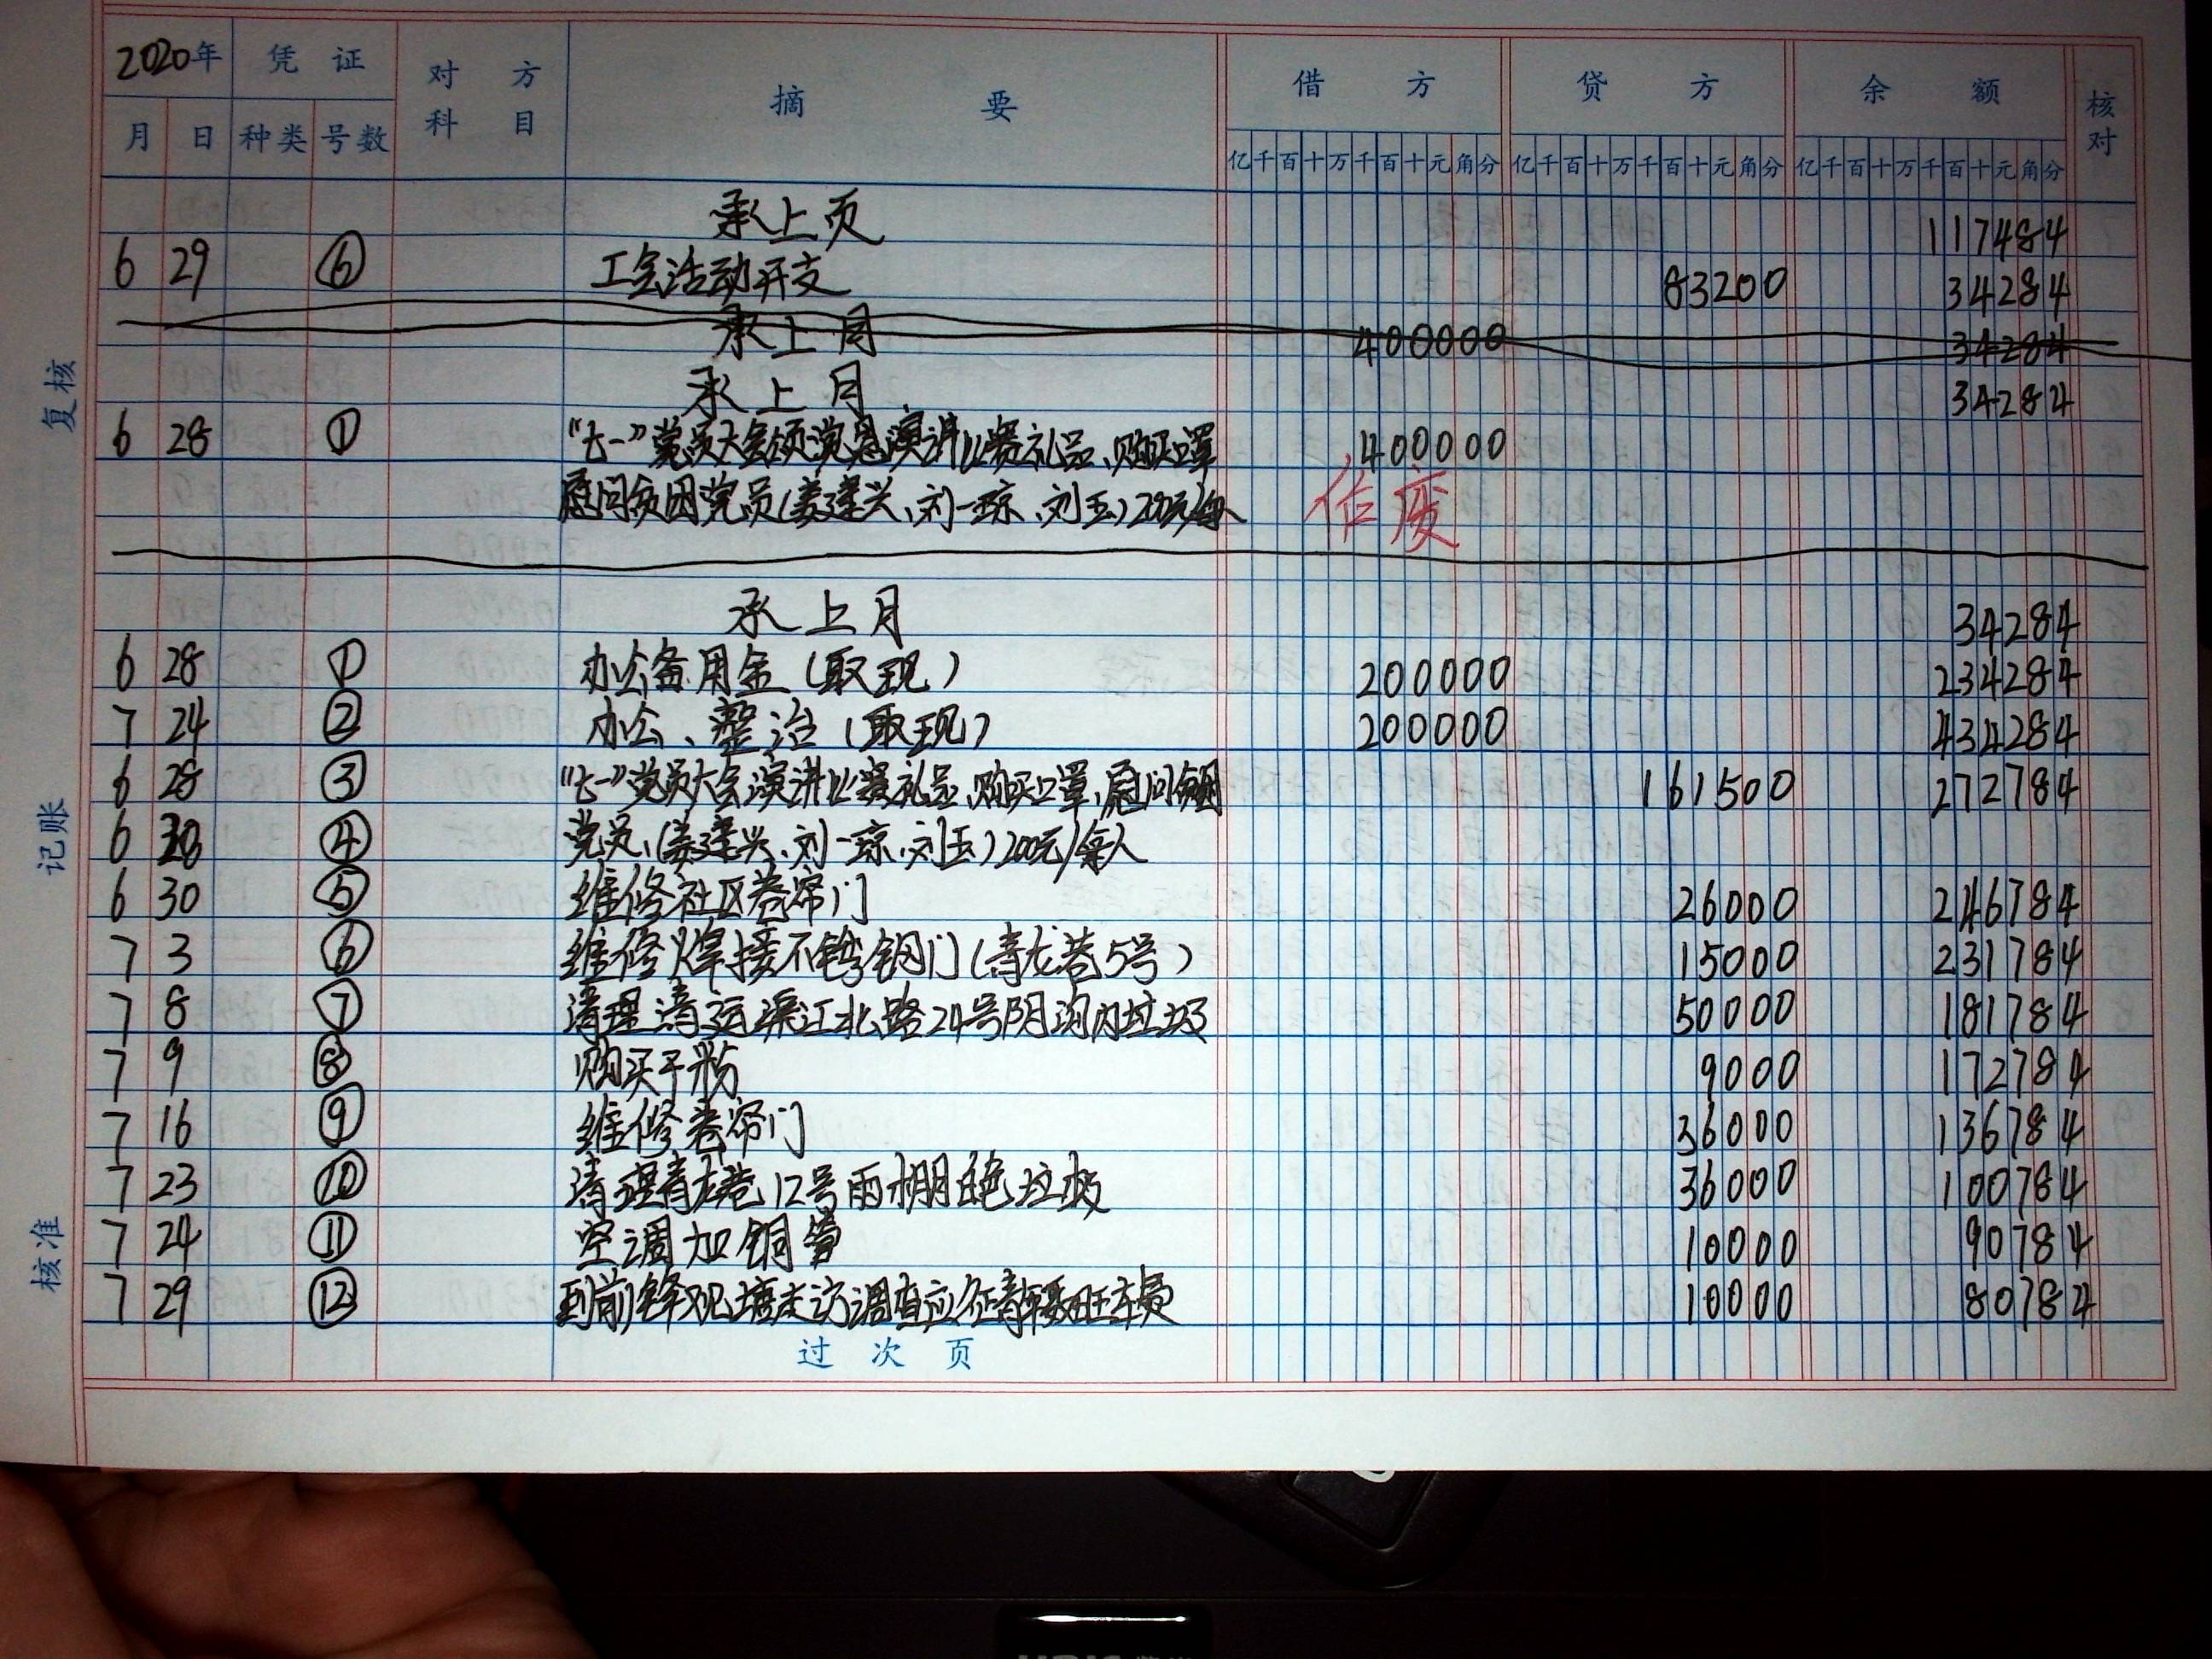 2020年 凭证 对方科目 摘要 借方 贷方 余额 核对
月 日 种类 号数 亿千百十万千百十元角分 亿千百十万千百十元角分 亿千百十万千百十元角分
承上页 117484
6 29 ⑥ 工会活动开支 83200 34284
承上月 400000 34284
承上月 34284
6 28 ① "七一"党员大会 演讲比赛礼品、购买口罩 400000
慰问贫困党员(姜建兴、刘一琼、刘玉)200元/每人 作废
承上月 34284
6 28 ① 办公备用金(取现) 200000 234284
7 24 ② 办公、整治(取现) 200000 434284
6 28 ③ "七一"党员大会演讲比赛礼品、购买口罩、慰问贫困 161500 272784
6 ④ 党员、(姜建兴、刘一琼、刘玉)200元/每人
6 30 ⑤ 维修社区卷帘门 26000 246784
7 3 ⑥ 维修焊接不锈钢门(青龙巷5号) 15000 231784
7 8 ⑦ 清理清运渠江北路24号阴沟内垃圾 50000 181784
7 9 ⑧ 购买干粉 9000 172784
7 16 ⑨ 维修卷帘门 36000 136784
7 23 ⑩ 清理青龙巷12号雨棚 垃圾 36000 100784
7 24 ⑪ 空调加铜管 10000 90784
7 29 ⑫ 到前锋观塘走访调查应征青年 车费 10000 80784
过次页
复核
记账
核准